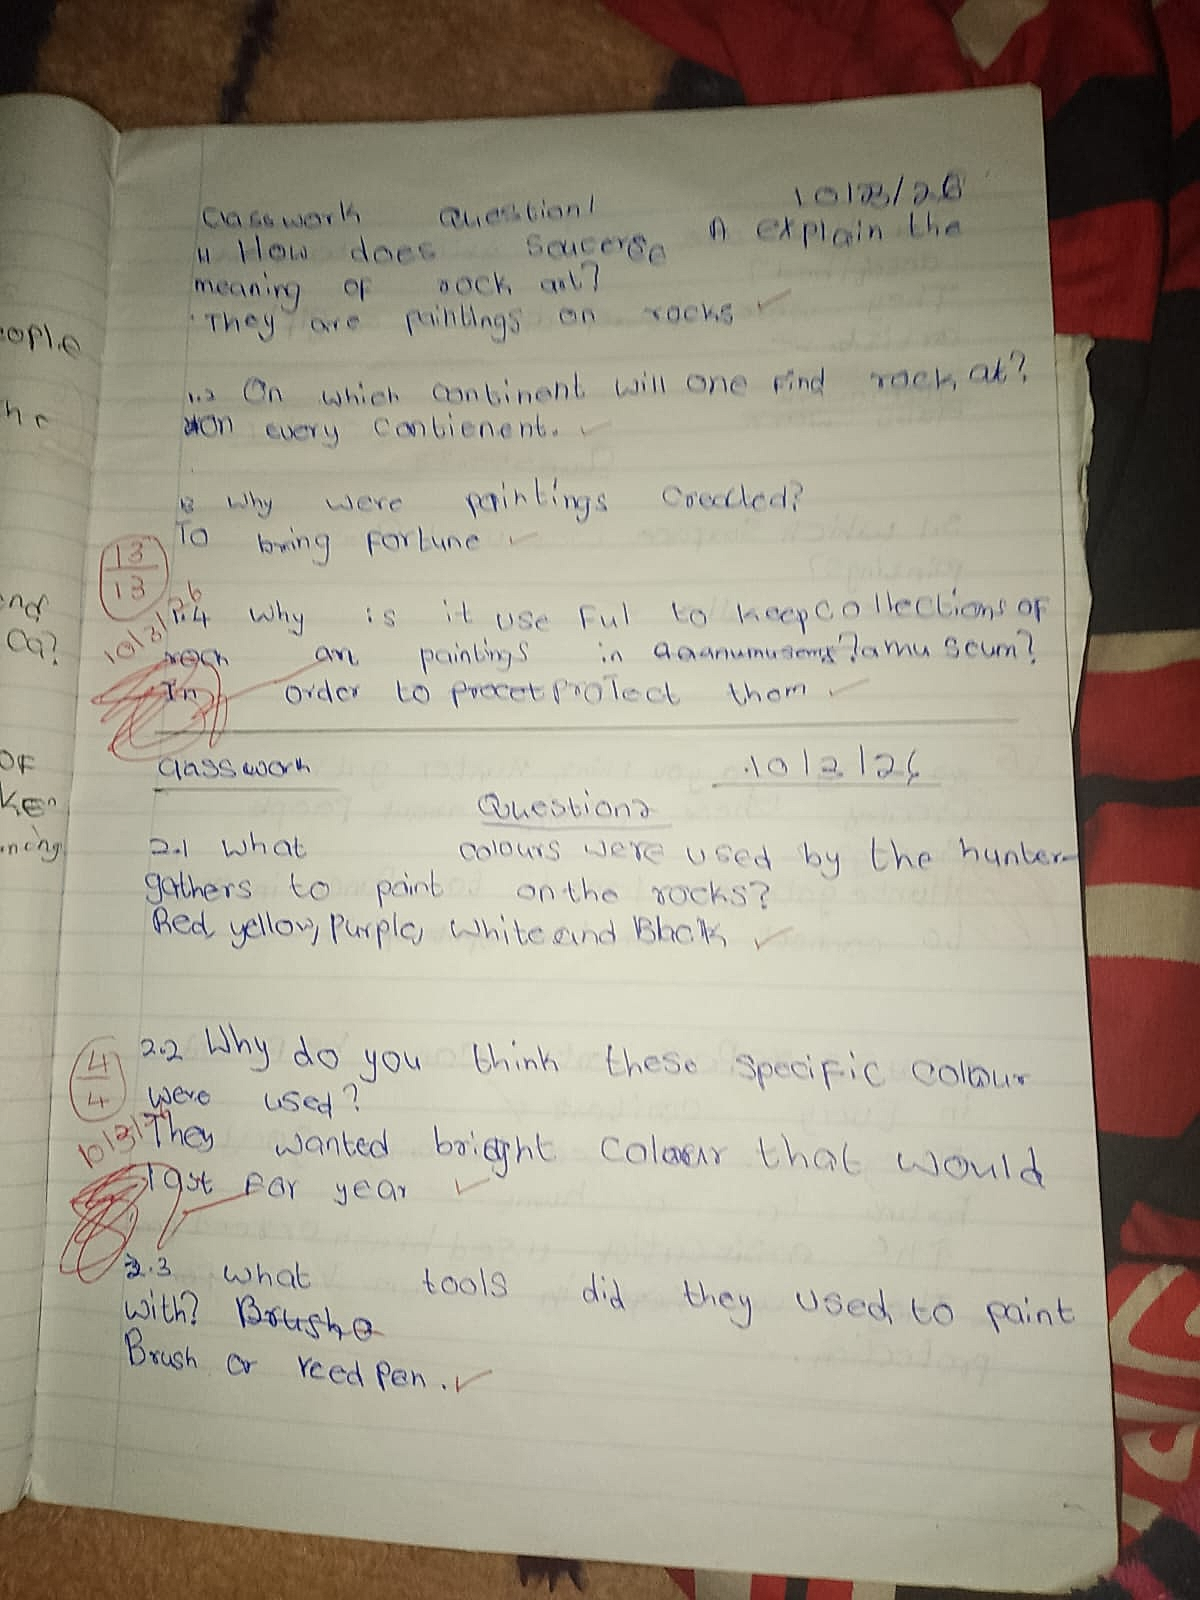 Classwork Question1 10/3/26
How does Source A explain the
meaning of rock art?
They are paintings on rocks
1.2 On which continent will one find rock at?
on every Contienent.
Why were paintings Creacted?
To bring Fortune
13
13
10/3/26
1.4 Why is it use Ful to keep collections of
rock art paintings in a museum?
In order to protect them
classwork 10/3/26
Question2
2.1 What colours were used by the hunter-
gathers to paint on the rocks?
Red, yellow, Purple, White and Black
2.2 Why do you think these specific colour
were used?
4
4
They wanted bright colour that would
10/3/26
last For year
2.3 What tools did they used to paint
with? Brush
Brush or reed Pen.
eople
he
and
Ca?
OF
ken
ning